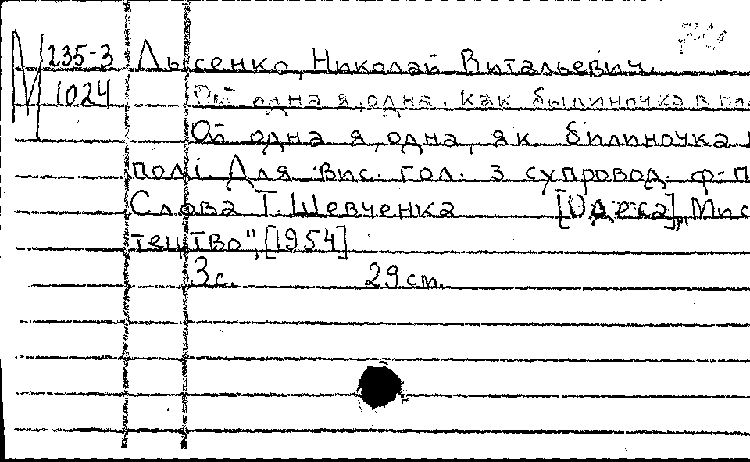 М 235-3
1024
Лысенко, Николай Витальевич.
Ой одна я, одна, как былиночка в
Ой одна я, одна, як билиночка
полі Для вис. гол. з супровод. ф-п
Слова Т. Шевченка [Одеса], „Мис
тецтво", [1954]
3с. 29 см.